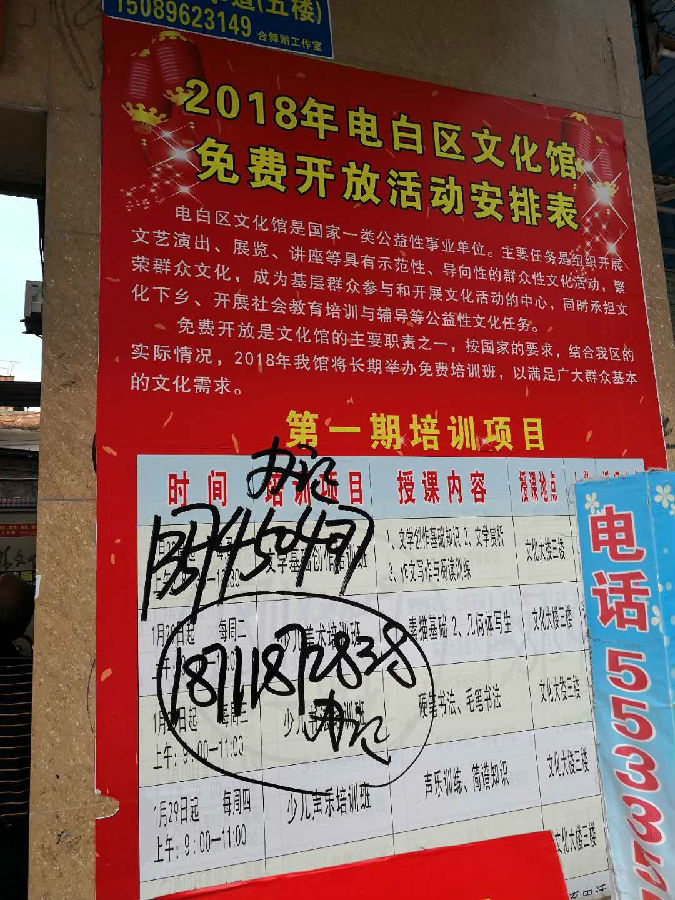 15089623149 合舞蹈工作室
2018年电白区文化馆
免费开放活动安排表
电白区文化馆是国家一类公益性事业单位。主要任务是组织开展
文艺演出、展览、讲座等具有示范性、导向性的群众性文化活动，繁
荣群众文化，成为基层群众参与和开展文化活动的中心，同时承担文
化下乡、开展社会教育培训与辅导等公益性文化任务。
免费开放是文化馆的主要职责之一，按国家的要求，结合我区的
实际情况，2018年我馆将长期举办免费培训班，以满足广大群众基本
的文化需求。
第一期培训项目
办记
时间 培训项目 授课内容 授课地点
1、文学创作基础知识 2、文学赏析
3、作文写作与硕读训练
文化大楼三楼
每周二 少儿美术培训班 素描基础 2、几何体写生 文化大楼三楼
18711872838
办记
硬笔书法、毛笔书法 文化大楼三楼
上午：9：00—11：00
1月29日起 每周四 少儿声乐培训班 声乐训练、简谱知识 文化大楼三楼
上午：9：00—11：00
文化大楼三楼
电话